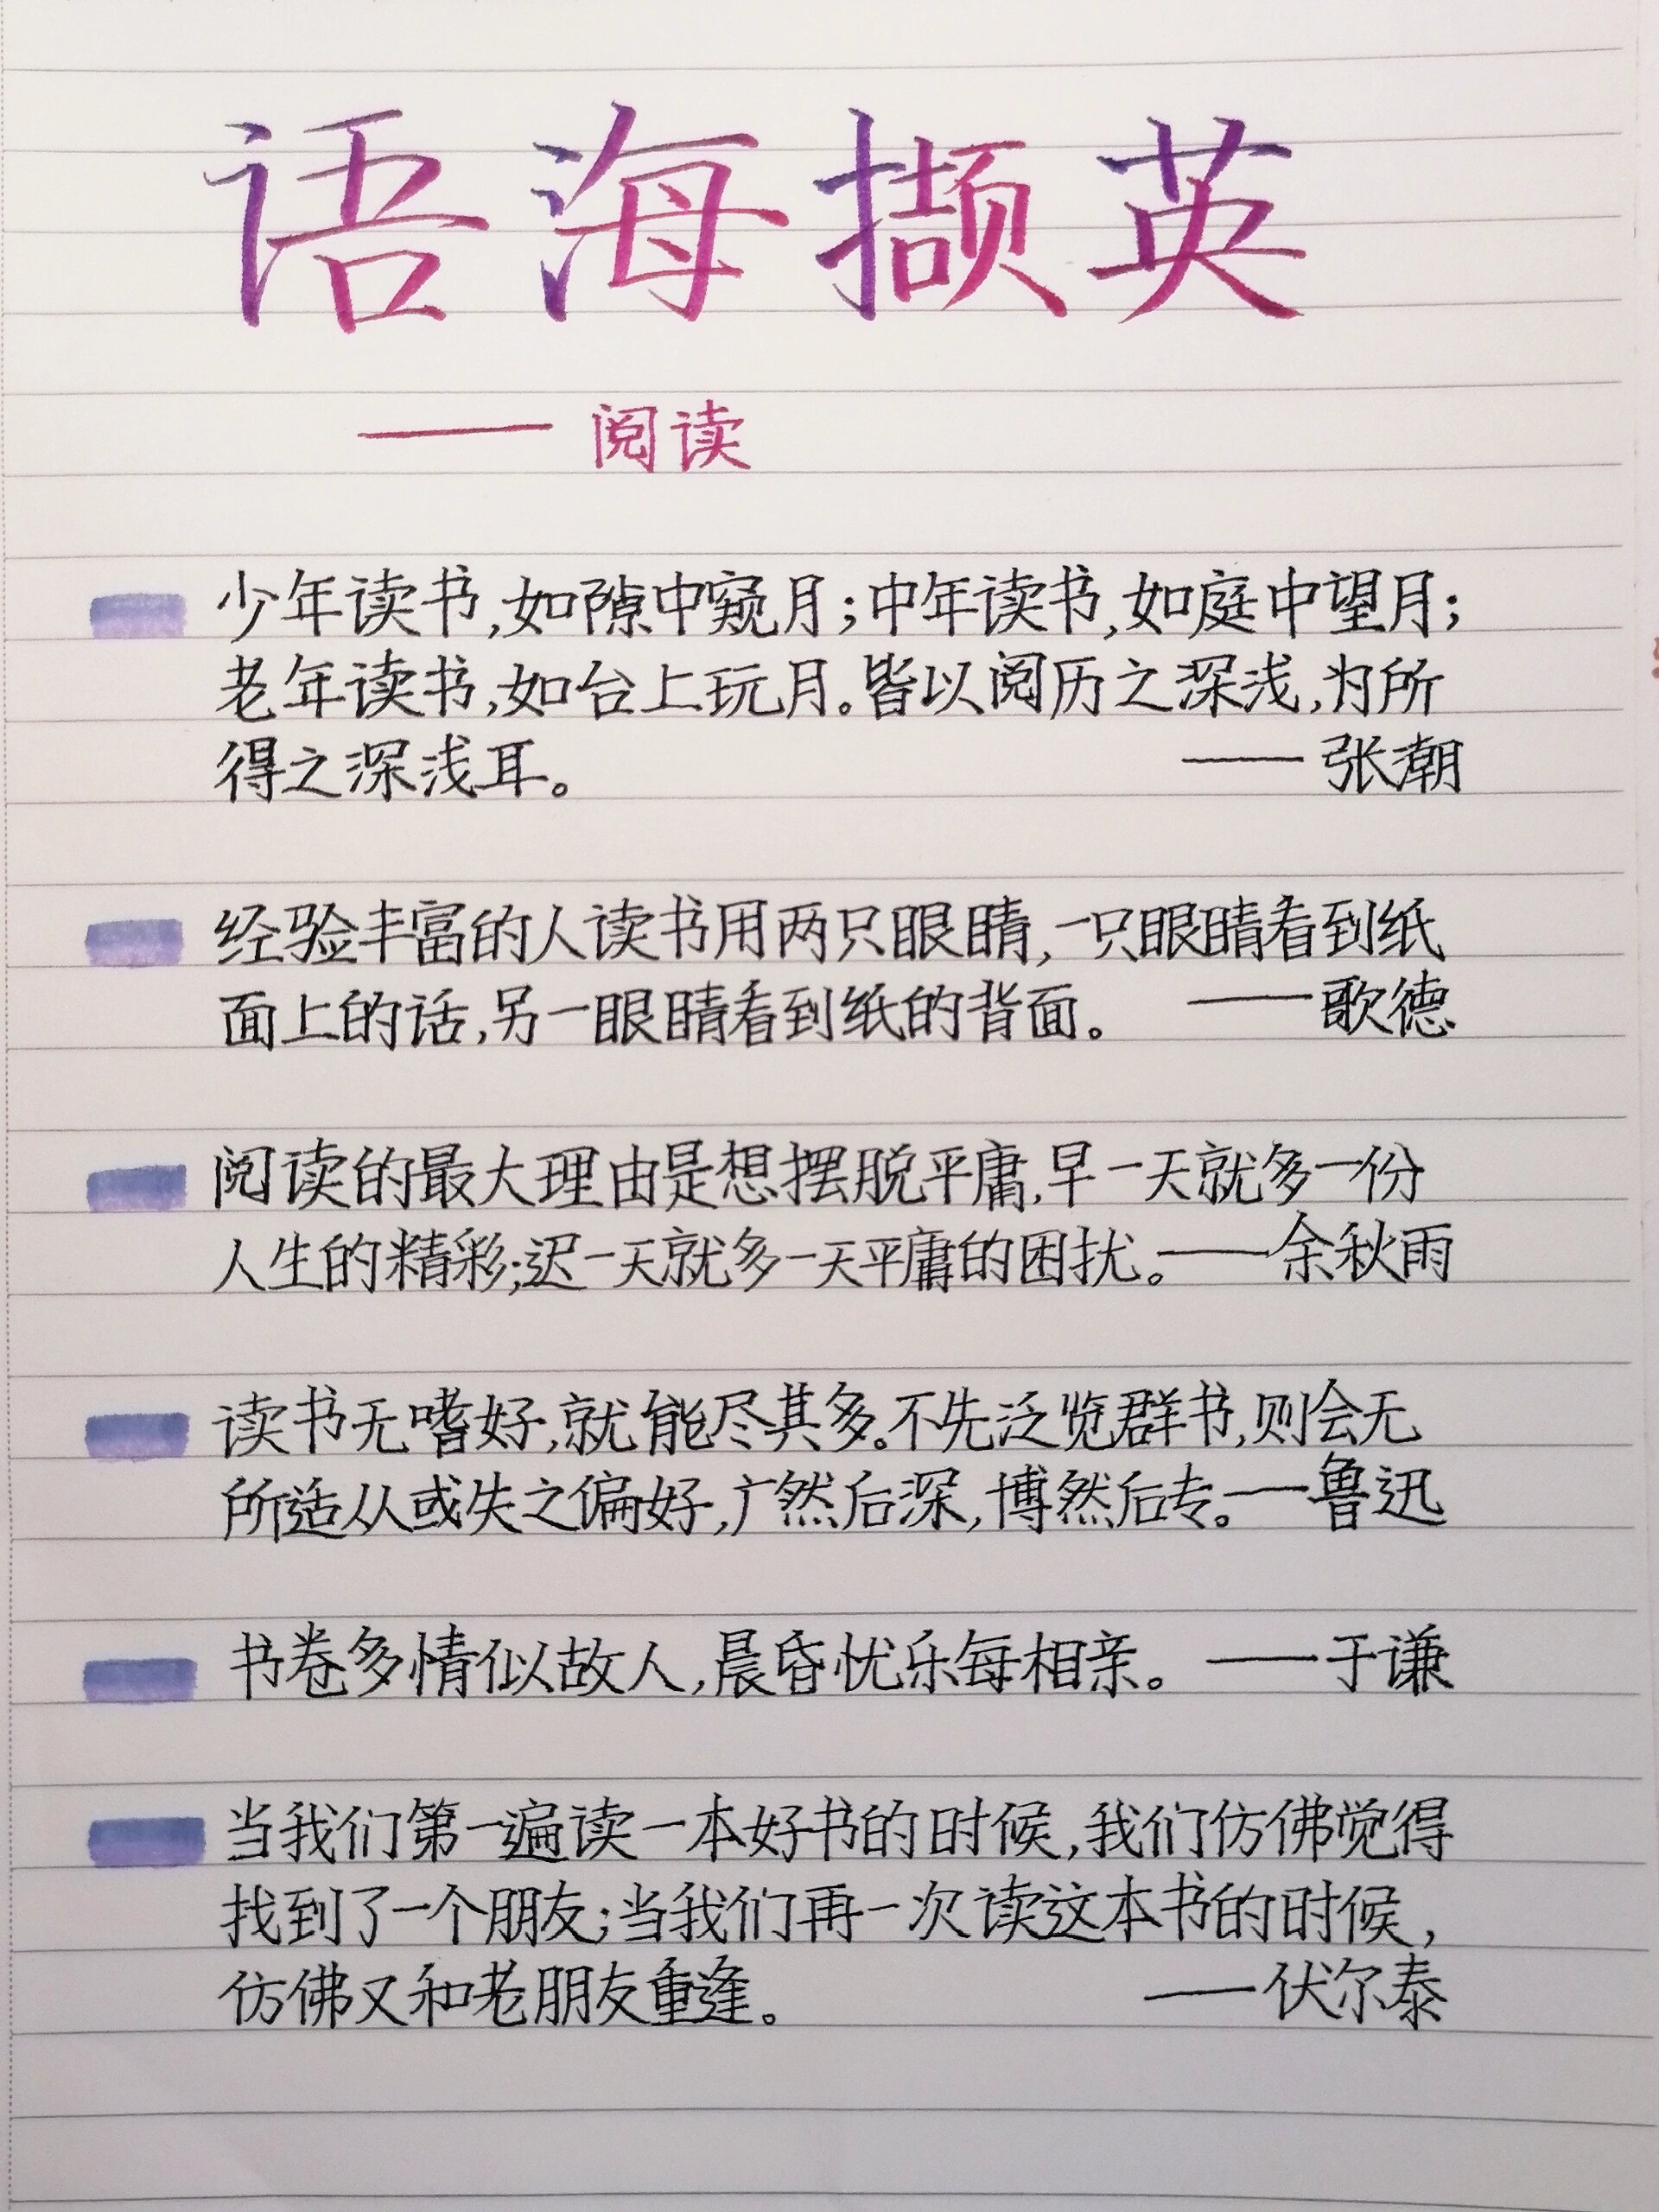 语海撷英
——阅读
少年读书,如隙中窥月;中年读书,如庭中望月;
老年读书,如台上玩月。皆以阅历之深浅,为所
得之深浅耳。 ——张潮
经验丰富的人读书用两只眼睛,一只眼睛看到纸
面上的话,另一眼睛看到纸的背面。 ——歌德
阅读的最大理由是想摆脱平庸,早一天就多一份
人生的精彩;迟一天就多一天平庸的困扰。——余秋雨
读书无嗜好,就能尽其多。不先泛览群书,则会无
所适从或失之偏好,广然后深,博然后专。——鲁迅
书卷多情似故人,晨昏忧乐每相亲。 ——于谦
当我们第一遍读一本好书的时候,我们仿佛觉得
找到了一个朋友;当我们再一次读这本书的时候,
仿佛又和老朋友重逢。 ——伏尔泰